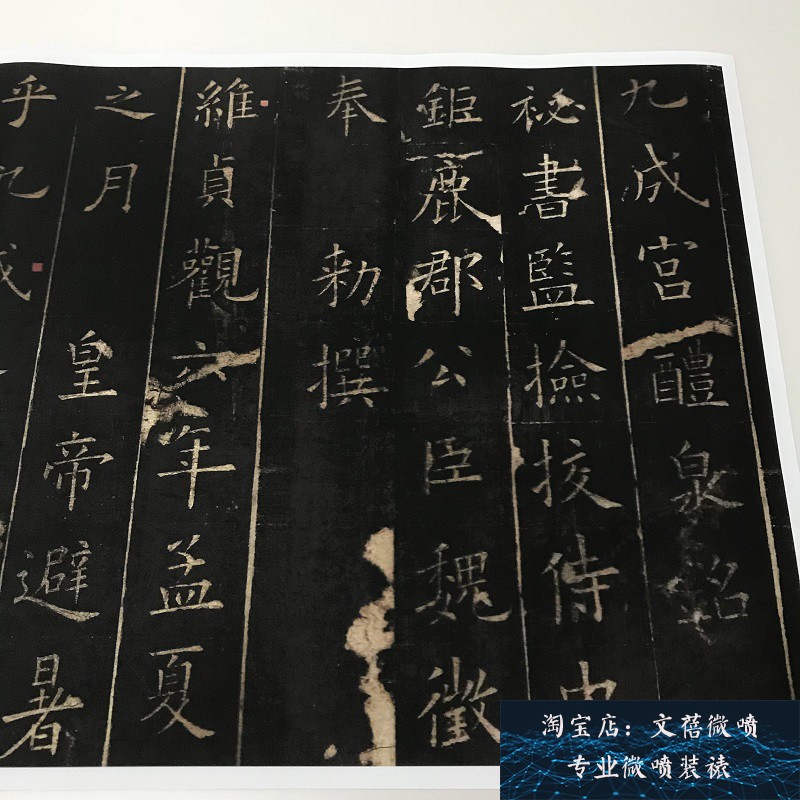 九成宮醴泉銘
祕書監撿挍侍中
鉅鹿郡公臣魏徵
奉勑撰
維貞觀六年孟夏
之月皇帝避暑
乎九成
淘宝店：文蓓微喷
专业微喷装裱